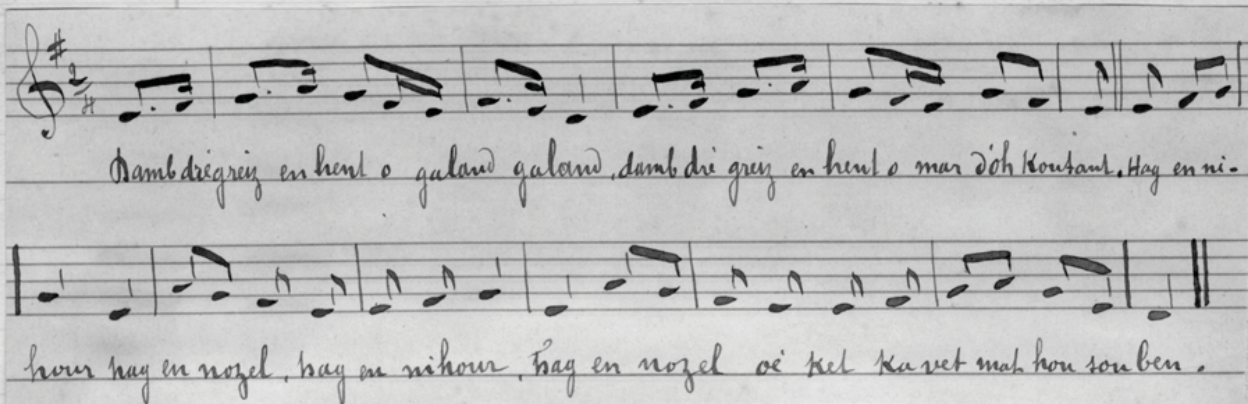 Damb dré greiz en hent o galand galand, damb dré greiz en hent o mar d'oh Koutant. Hag en ni-
hour hag en nozel, hag en nihour, hag en nozel oé ket kavet mat hou souben.